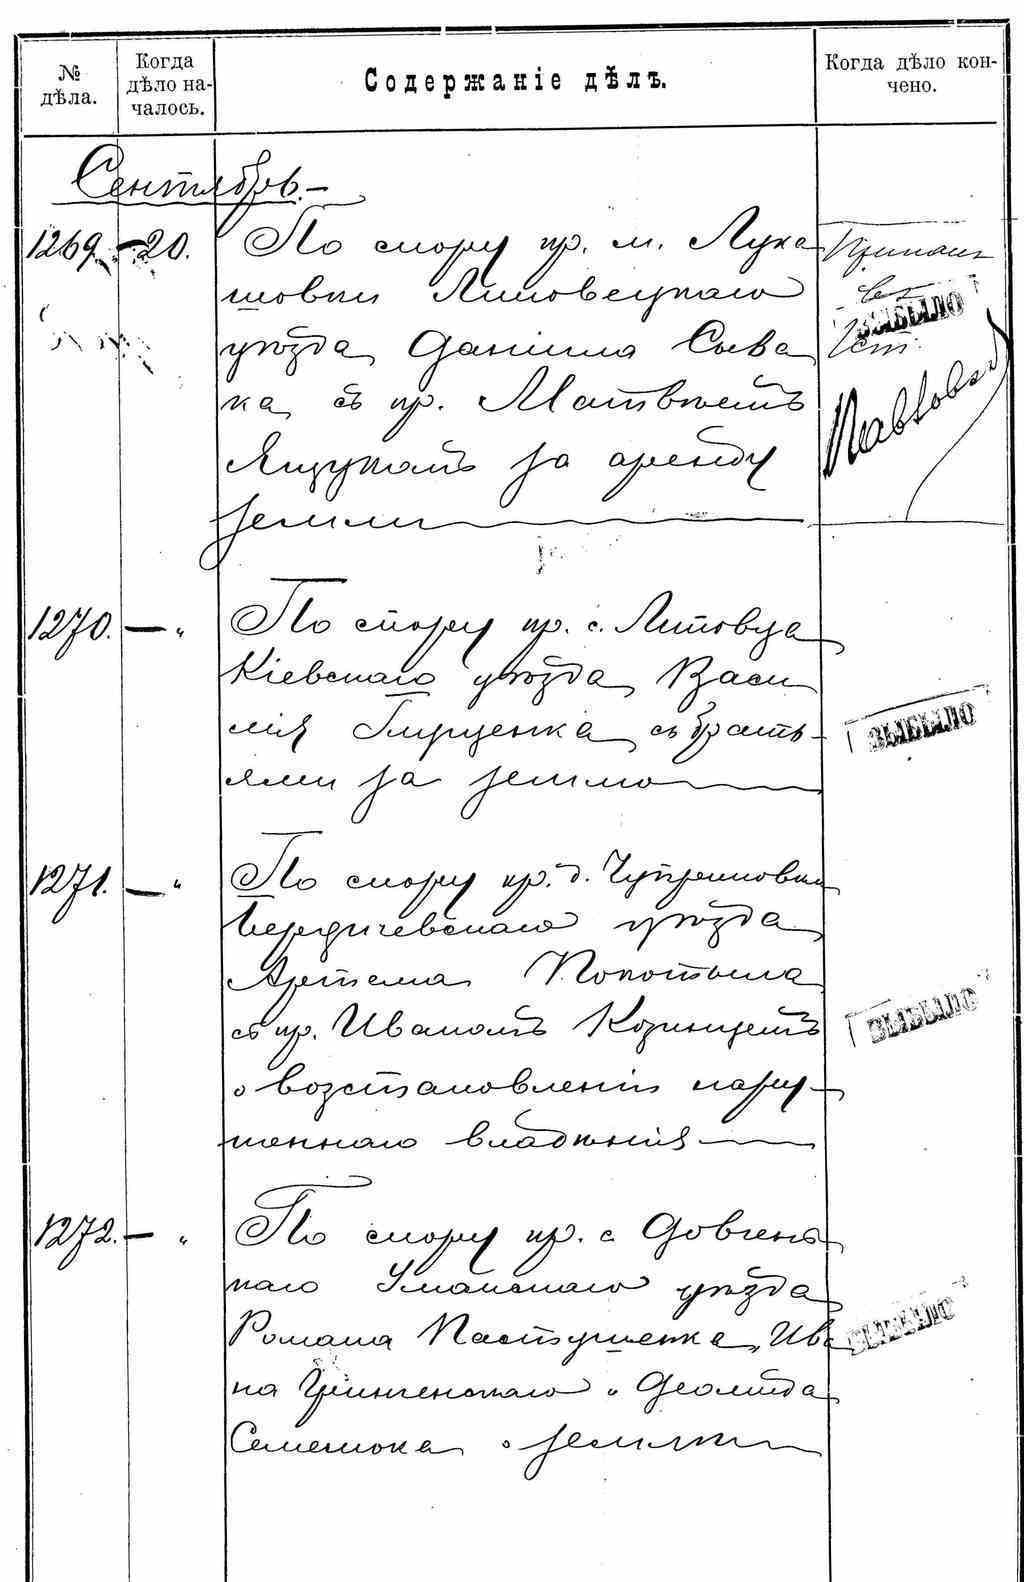 № дѣла.
Когда дѣло началось.
Содержаніе дѣлъ.
Когда дѣло кончено.
Сентябрь.
1269. — 20. По спору кр. м. Лука
шовки Липовецкаго
уѣзда, Даніила Сыва
ка, съ кр. Матвѣемъ
Ящукомъ за аренду
земли
ВЫБЫЛО
1270. — " По спору кр. с. Литовца
Кіевскаго уѣзда, Васи
лія Грищенка, съ брать-
ями за землю
ВЫБЫЛО
1271. — " По спору кр. д. Чуприновки
Бердичевскаго уѣзда
Артема Покотыла
съ кр. Иваномъ Козинцемъ
о возстановленіи нару-
шеннаго владѣнія
ВЫБЫЛО
1272. — " По спору кр. с.
Уманскаго уѣзда
Романа Пастушенка, Ива
на и
Семенюка о землѣ
ВЫБЫЛО